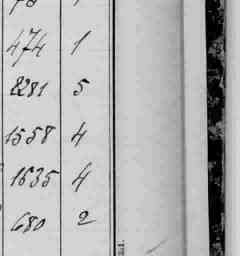 474 1
8281 5
1558 4
1635 4
680 2